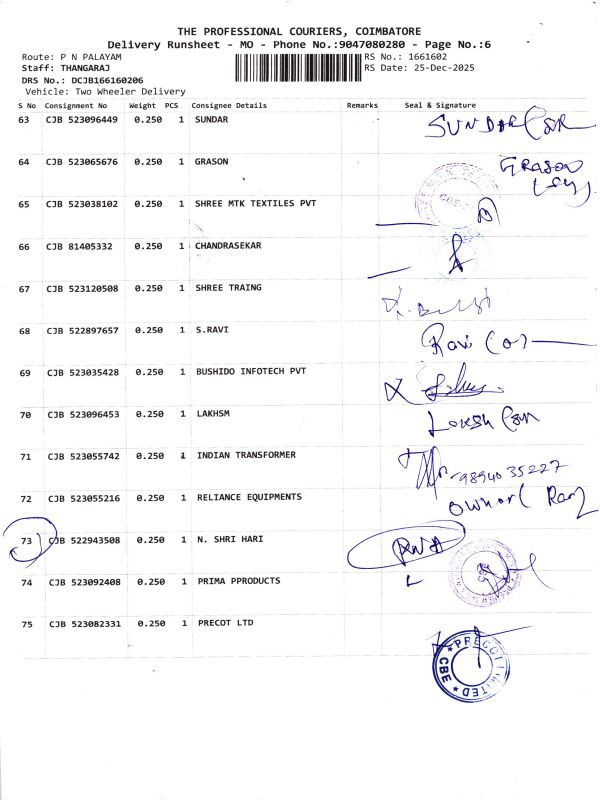 THE PROFESSIONAL COURIERS, COIMBATORE
Delivery Runsheet - MO - Phone No.:9047080280 - Page No.:6
Route: P N PALAYAM RS No.: 1661602
Staff: THANGARAJ RS Date: 25-Dec-2025
DRS No.: DCJB166160206
Vehicle: Two Wheeler Delivery
S No Consignment No Weight PCS Consignee Details Remarks Seal & Signature
63 CJB 523096449 0.250 1 SUNDAR SUNDAR
64 CJB 523065676 0.250 1 GRASON GRASON
65 CJB 523038102 0.250 1 SHREE MTK TEXTILES PVT
66 CJB 81405332 0.250 1 CHANDRASEKAR
67 CJB 523120508 0.250 1 SHREE TRAING
68 CJB 522897657 0.250 1 S.RAVI Ravi
69 CJB 523035428 0.250 1 BUSHIDO INFOTECH PVT
70 CJB 523096453 0.250 1 LAKHSM
71 CJB 523055742 0.250 1 INDIAN TRANSFORMER 9894035227
72 CJB 523055216 0.250 1 RELIANCE EQUIPMENTS owner
73 CJB 522943508 0.250 1 N. SHRI HARI
74 CJB 523092408 0.250 1 PRIMA PPRODUCTS
75 CJB 523082331 0.250 1 PRECOT LTD
PRECOT LIMITED
CBE